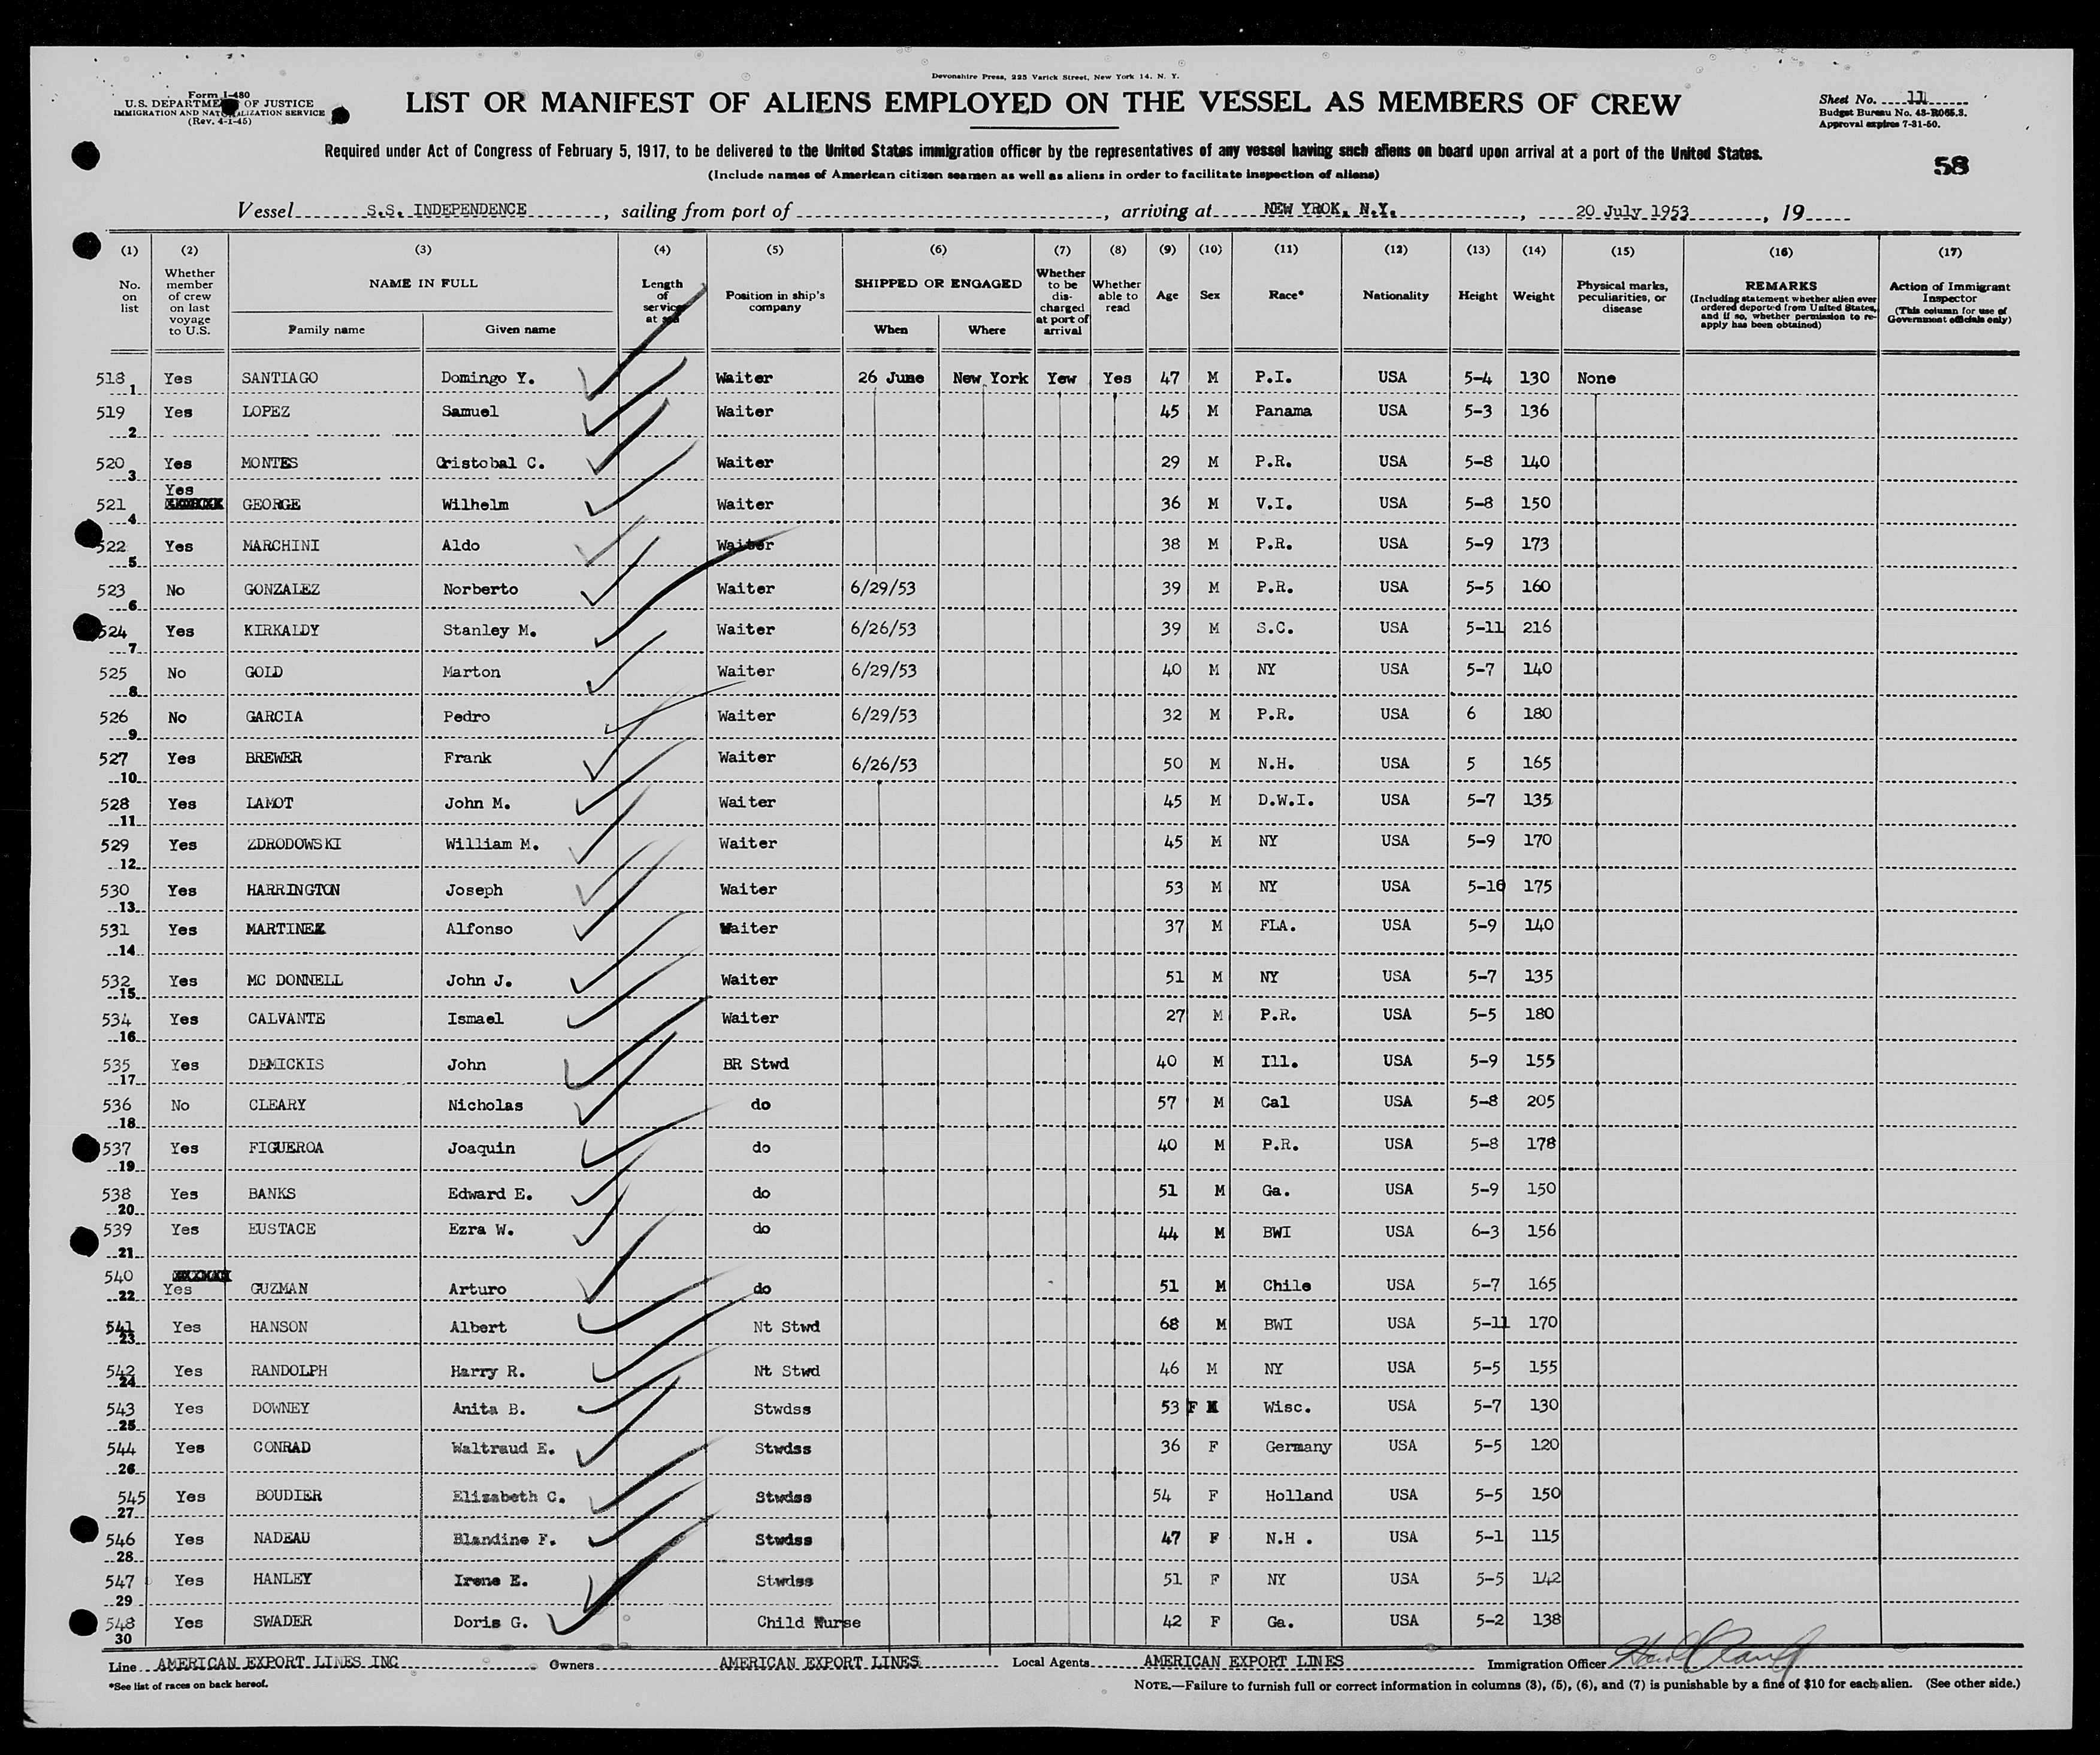 Devonshire Press, 225 Varick Street, New York 14, N. Y.
Form I-480
U.S. DEPARTMENT OF JUSTICE
IMMIGRATION AND NATURALIZATION SERVICE
(Rev. 4-1-45)
LIST OR MANIFEST OF ALIENS EMPLOYED ON THE VESSEL AS MEMBERS OF CREW
Sheet No. 11
Budget Bureau No. 43-R065.3.
Approval expires 7-31-50.
Required under Act of Congress of February 5, 1917, to be delivered to the United States immigration officer by the representatives of any vessel having such aliens on board upon arrival at a port of the United States.
(Include names of American citizen seamen as well as aliens in order to facilitate inspection of aliens)
58
Vessel S.S. INDEPENDENCE, sailing from port of , arriving at NEW YROK, N.Y., 20 July 1953, 19
(1) (2) (3) (4) (5) (6) (7) (8) (9) (10) (11) (12) (13) (14) (15) (16) (17)
No. on list
Whether member of crew on last voyage to U.S.
NAME IN FULL
Family name
Given name
Length of service at sea
Position in ship's company
SHIPPED OR ENGAGED
When
Where
Whether to be discharged at port of arrival
Whether able to read
Age
Sex
Race*
Nationality
Height
Weight
Physical marks, peculiarities, or disease
REMARKS
(Including statement whether alien ever ordered deported from United States, and if so, whether permission to reapply has been obtained)
Action of Immigrant Inspector
(This column for use of Government officials only)
518 1 Yes SANTIAGO Domingo Y. Waiter 26 June New York Yew Yes 47 M P.I. USA 5-4 130 None
519 2 Yes LOPEZ Samuel Waiter 45 M Panama USA 5-3 136
520 3 Yes MONTES Cristobal C. Waiter 29 M P.R. USA 5-8 140
521 4 Yes GEORGE Wilhelm Waiter 36 M V.I. USA 5-8 150
522 5 Yes MARCHINI Aldo Waiter 38 M P.R. USA 5-9 173
523 6 No GONZALEZ Norberto Waiter 6/29/53 39 M P.R. USA 5-5 160
524 7 Yes KIRKALDY Stanley M. Waiter 6/26/53 39 M S.C. USA 5-11 216
525 8 No GOLD Marton Waiter 6/29/53 40 M NY USA 5-7 140
526 9 No GARCIA Pedro Waiter 6/29/53 32 M P.R. USA 6 180
527 10 Yes BREWER Frank Waiter 6/26/53 50 M N.H. USA 5 165
528 11 Yes LAMOT John M. Waiter 45 M D.W.I. USA 5-7 135
529 12 Yes ZDRODOWSKI William M. Waiter 45 M NY USA 5-9 170
530 13 Yes HARRINGTON Joseph Waiter 53 M NY USA 5-10 175
531 14 Yes MARTINEZ Alfonso Waiter 37 M FLA. USA 5-9 140
532 15 Yes MC DONNELL John J. Waiter 51 M NY USA 5-7 135
534 16 Yes CALVANTE Ismael Waiter 27 M P.R. USA 5-5 180
535 17 Yes DEMICKIS John BR Stwd 40 M Ill. USA 5-9 155
536 18 No CLEARY Nicholas do 57 M Cal USA 5-8 205
537 19 Yes FIGUEROA Joaquin do 40 M P.R. USA 5-8 178
538 20 Yes BANKS Edward E. do 51 M Ga. USA 5-9 150
539 21 Yes EUSTACE Ezra W. do 44 M BWI USA 6-3 156
540 22 Yes GUZMAN Arturo do 51 M Chile USA 5-7 165
541 23 Yes HANSON Albert Nt Stwd 68 M BWI USA 5-11 170
542 24 Yes RANDOLPH Harry R. Nt Stwd 46 M NY USA 5-5 155
543 25 Yes DOWNEY Anita B. Stwdss 53 F Wisc. USA 5-7 130
544 26 Yes CONRAD Waltraud E. Stwdss 36 F Germany USA 5-5 120
545 27 Yes BOUDIER Elizabeth C. Stwdss 54 F Holland USA 5-5 150
546 28 Yes NADEAU Blandine F. Stwdss 47 F N.H . USA 5-1 115
547 29 Yes HANLEY Irene E. Stwdss 51 F NY USA 5-5 142
548 30 Yes SWADER Doris G. Child Nurse 42 F Ga. USA 5-2 138
Line AMERICAN EXPORT LINES INC Owners AMERICAN EXPORT LINES Local Agents AMERICAN EXPORT LINES Immigration Officer
*See list of races on back hereof.
NOTE.—Failure to furnish full or correct information in columns (3), (5), (6), and (7) is punishable by a fine of $10 for each alien. (See other side.)